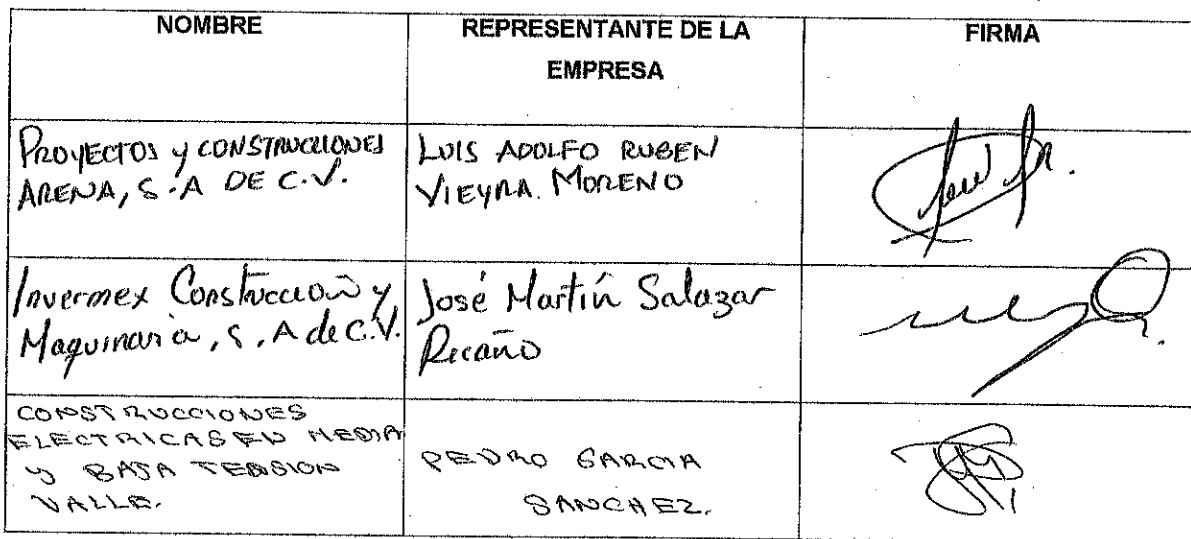 NOMBRE
REPRESENTANTE DE LA
EMPRESA
FIRMA
PROYECTOS y CONSTRUCCIONES
ARENA, S.A DE C.V.
LUIS ADOLFO RUBEN
VIEYRA MORENO
Invermex Construcción y
Maquinaria, S.A de C.V.
José Martín Salazar
Recaño
CONSTRUCCIONES
ELECTRICAS EN MEDIA
y BAJA TENSION
VALLE.
PEDRO GARCIA
SANCHEZ.